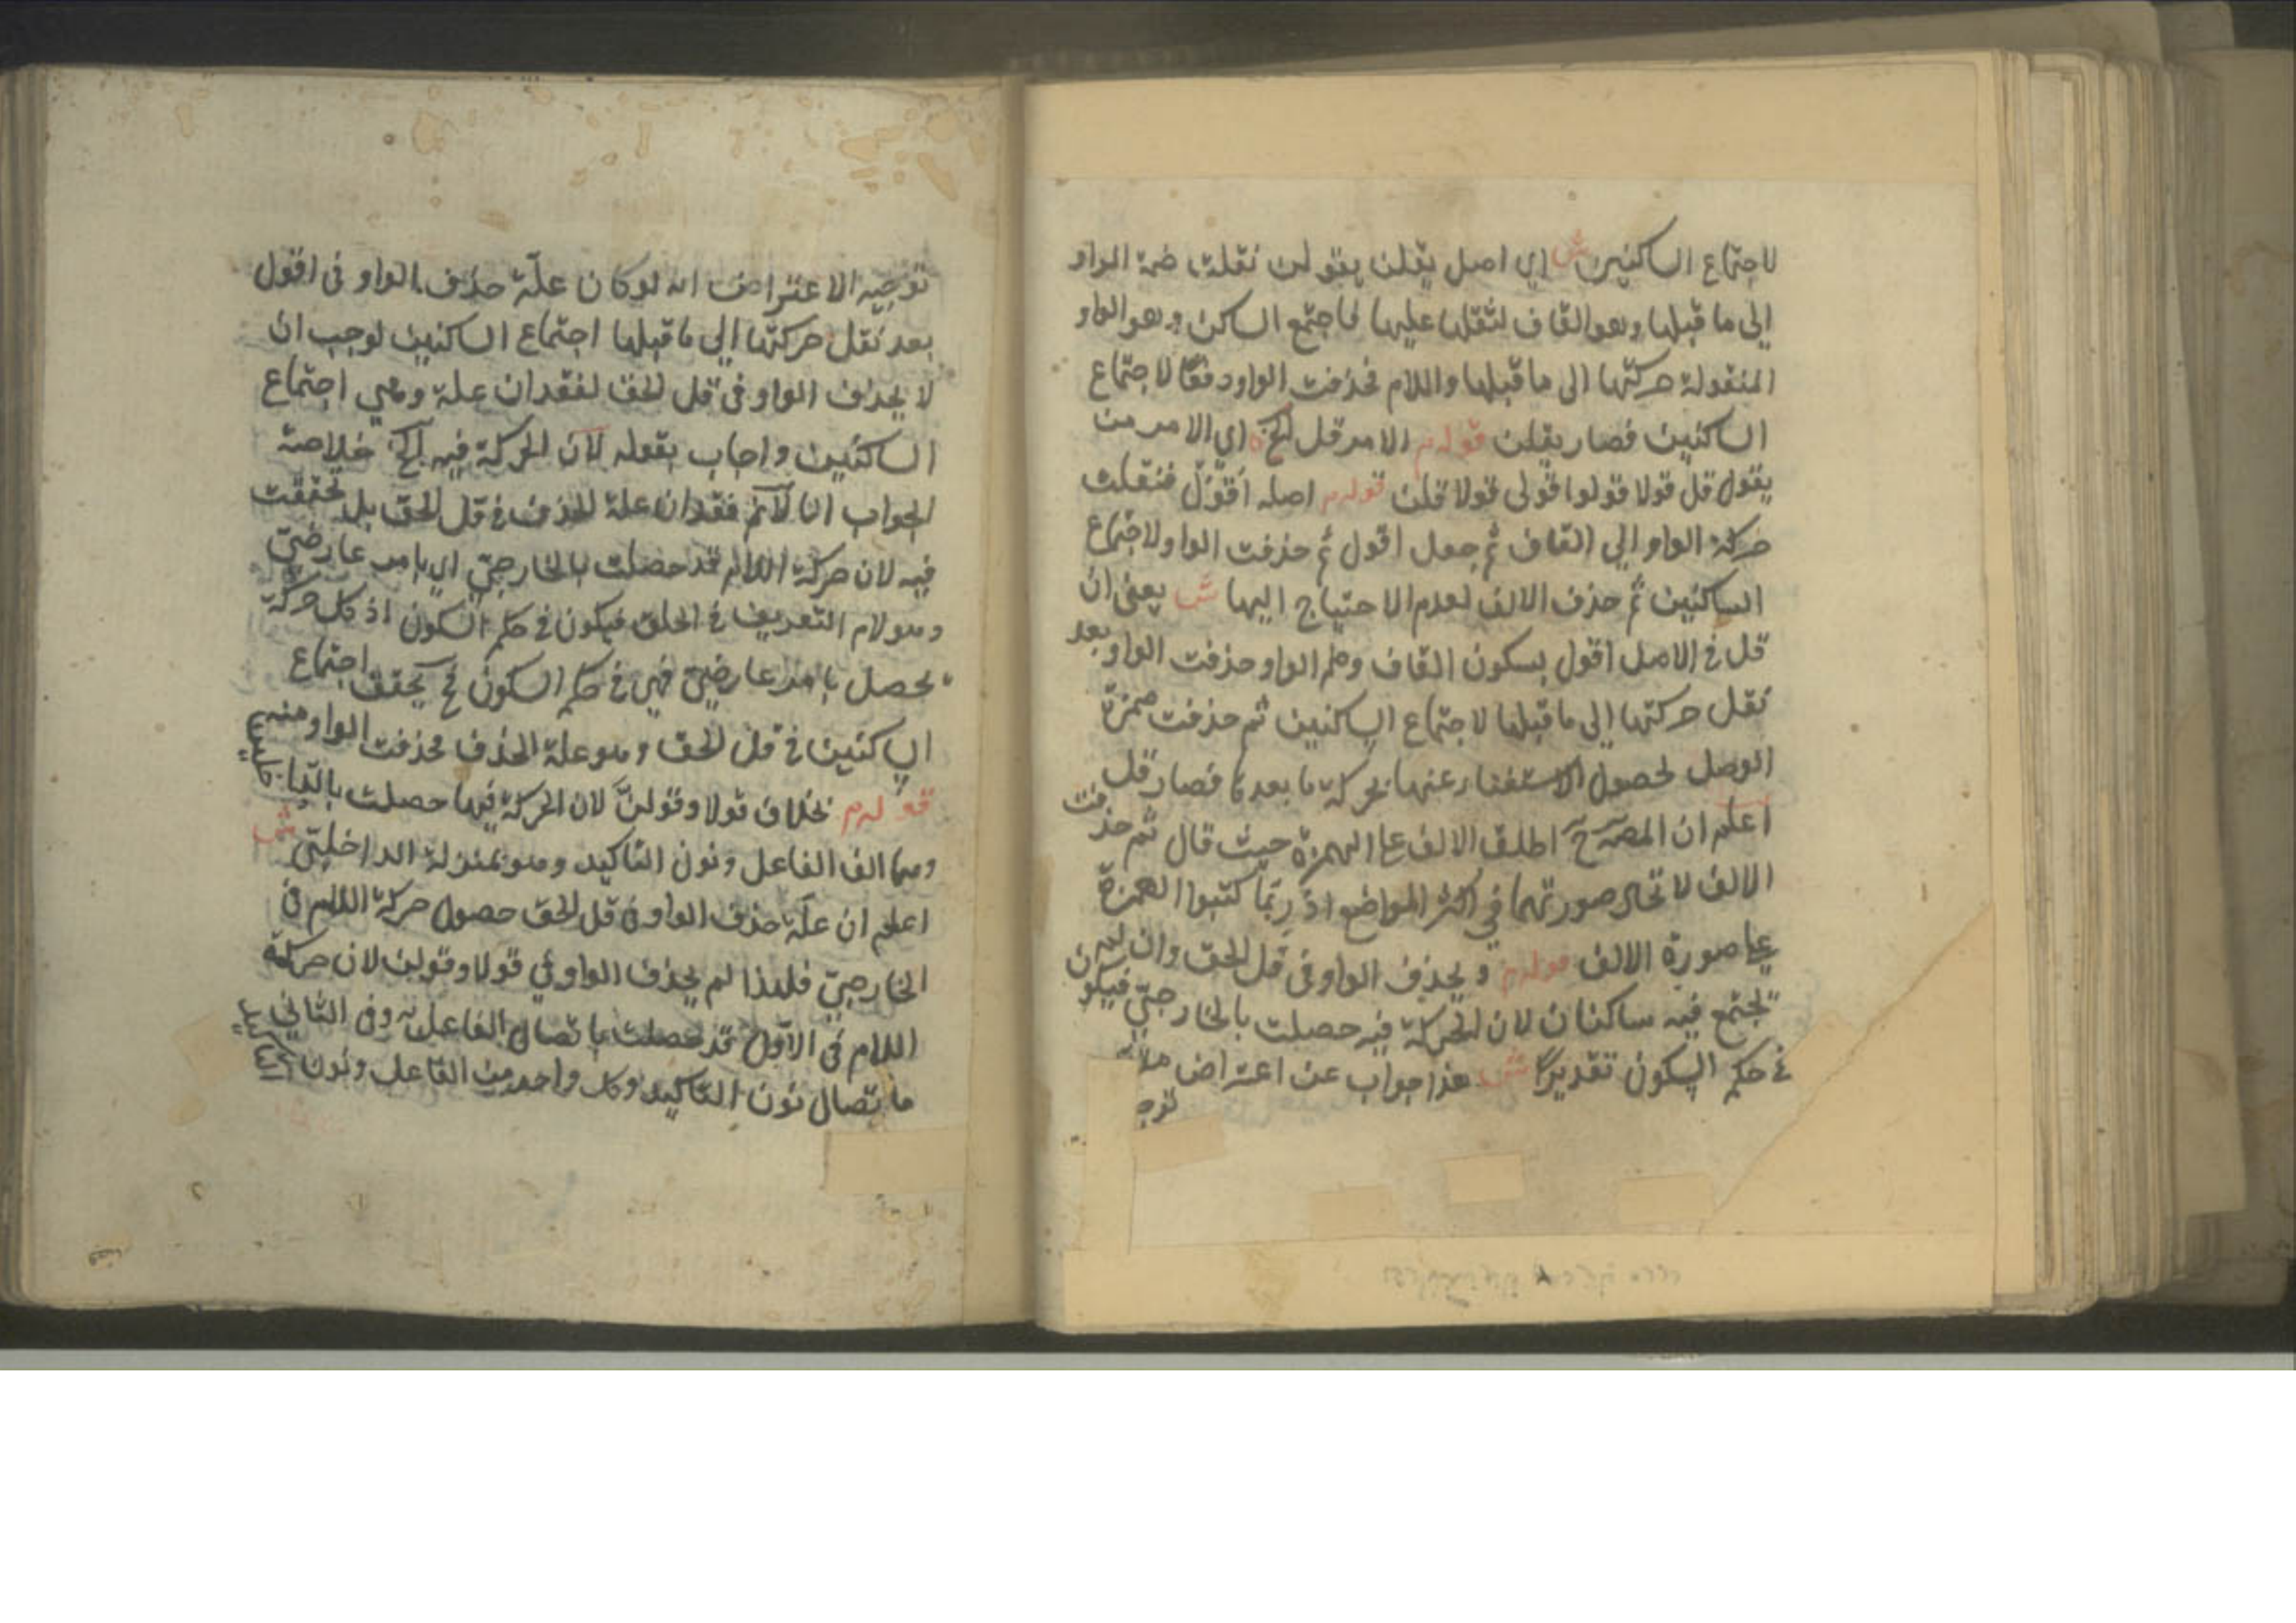 لاجتماع الساكنين ش اي اصل يقلن يقولن نقلت ضمة الواو
الى ما قبلها وهو القاف لثقلها عليها فاجتمع الساكن وهو الواو
المنقولة حركتها الى ما قبلها واللام فحذفت الواو دفعًا لاجتماع
الساكنين فصار يقلن قوله م الامر قل الخ ه اي الامر من
يقول قل قولا قولوا قولى قولا قلن قوله م اصله اَقْوُل فنقلت
حركة الواو الي القاف ثم جعل اقول ثم حذفت الواو لاجتماع
الساكنين ثم حذف الالف لعدم الاحتياج اليها ش يعنى ان
قل في الاصل اقول بسكون القاف وضم الواو حذفت الواو بعد
نقل حركتها الى ما قبلها لاجتماع الساكنين ثم حذفت همزة
الوصل لحصول الاستغناء عنها بحركة ما بعدها فصار قل
اعلم ان المصـ رح اطلق الالف على الهمزة حيث قال ثم حذفت
الالف لاتحاد صورتهما في اكثر المواضع اذ ربّما كتبوا الهمزة
على صورة الالف قوله م ويحذف الواو فى قل الحق وان لم
تجتمع فيه ساكنان لان الحركة فيه حصلت بالخارجيّ فيكون
في حكم السكون تقديرًا ش هذا جواب عن اعتراض
توجه
توجيه الاعتراض انه لو كان علّة حذف الواو فى اقول
بعد نقل حركتها الي ما قبلها اجتماع الساكنين لوجب ان
لا يحذف الواو فى قل الحق لفقدان علة وهي اجتماع
الساكنين واجاب بقوله لان الحركة فيه الخ خلاصة
الجواب انا لا نم فقدان علة الحذف في قل الحق بل تحققت
فيه لان حركة اللام قد حصلت بالخارجيّ اي بامر عارضيّ
وهو لام التعريف في الحق فيكون في حكم السكون اذ كل حركة
تحصل بامر عارضيّ فهي في حكم السكون فح يحقق اجتماع
الساكنين في قل الحق وهو علة الحذف فحذفت الواو منه
قوله م بخلاف قولا وقولنّ لان الحركة فيهما حصلت بالداخليين
وهما الف الفاعل ونون التاكيد وهو بمنزلة الداخليّ ش
اعلم ان علّة حذف الواو في قل الحق حصول حركة اللام فى
الخارجيّ فلهذا لم يحذف الواو في قولا وقولن لان حركة
اللام فى الاوّل قد حصلت باتصال الفاعل به وفى الثاني
باتصال نون التاكيد وكل واحد من الفاعل ونون التاكيد